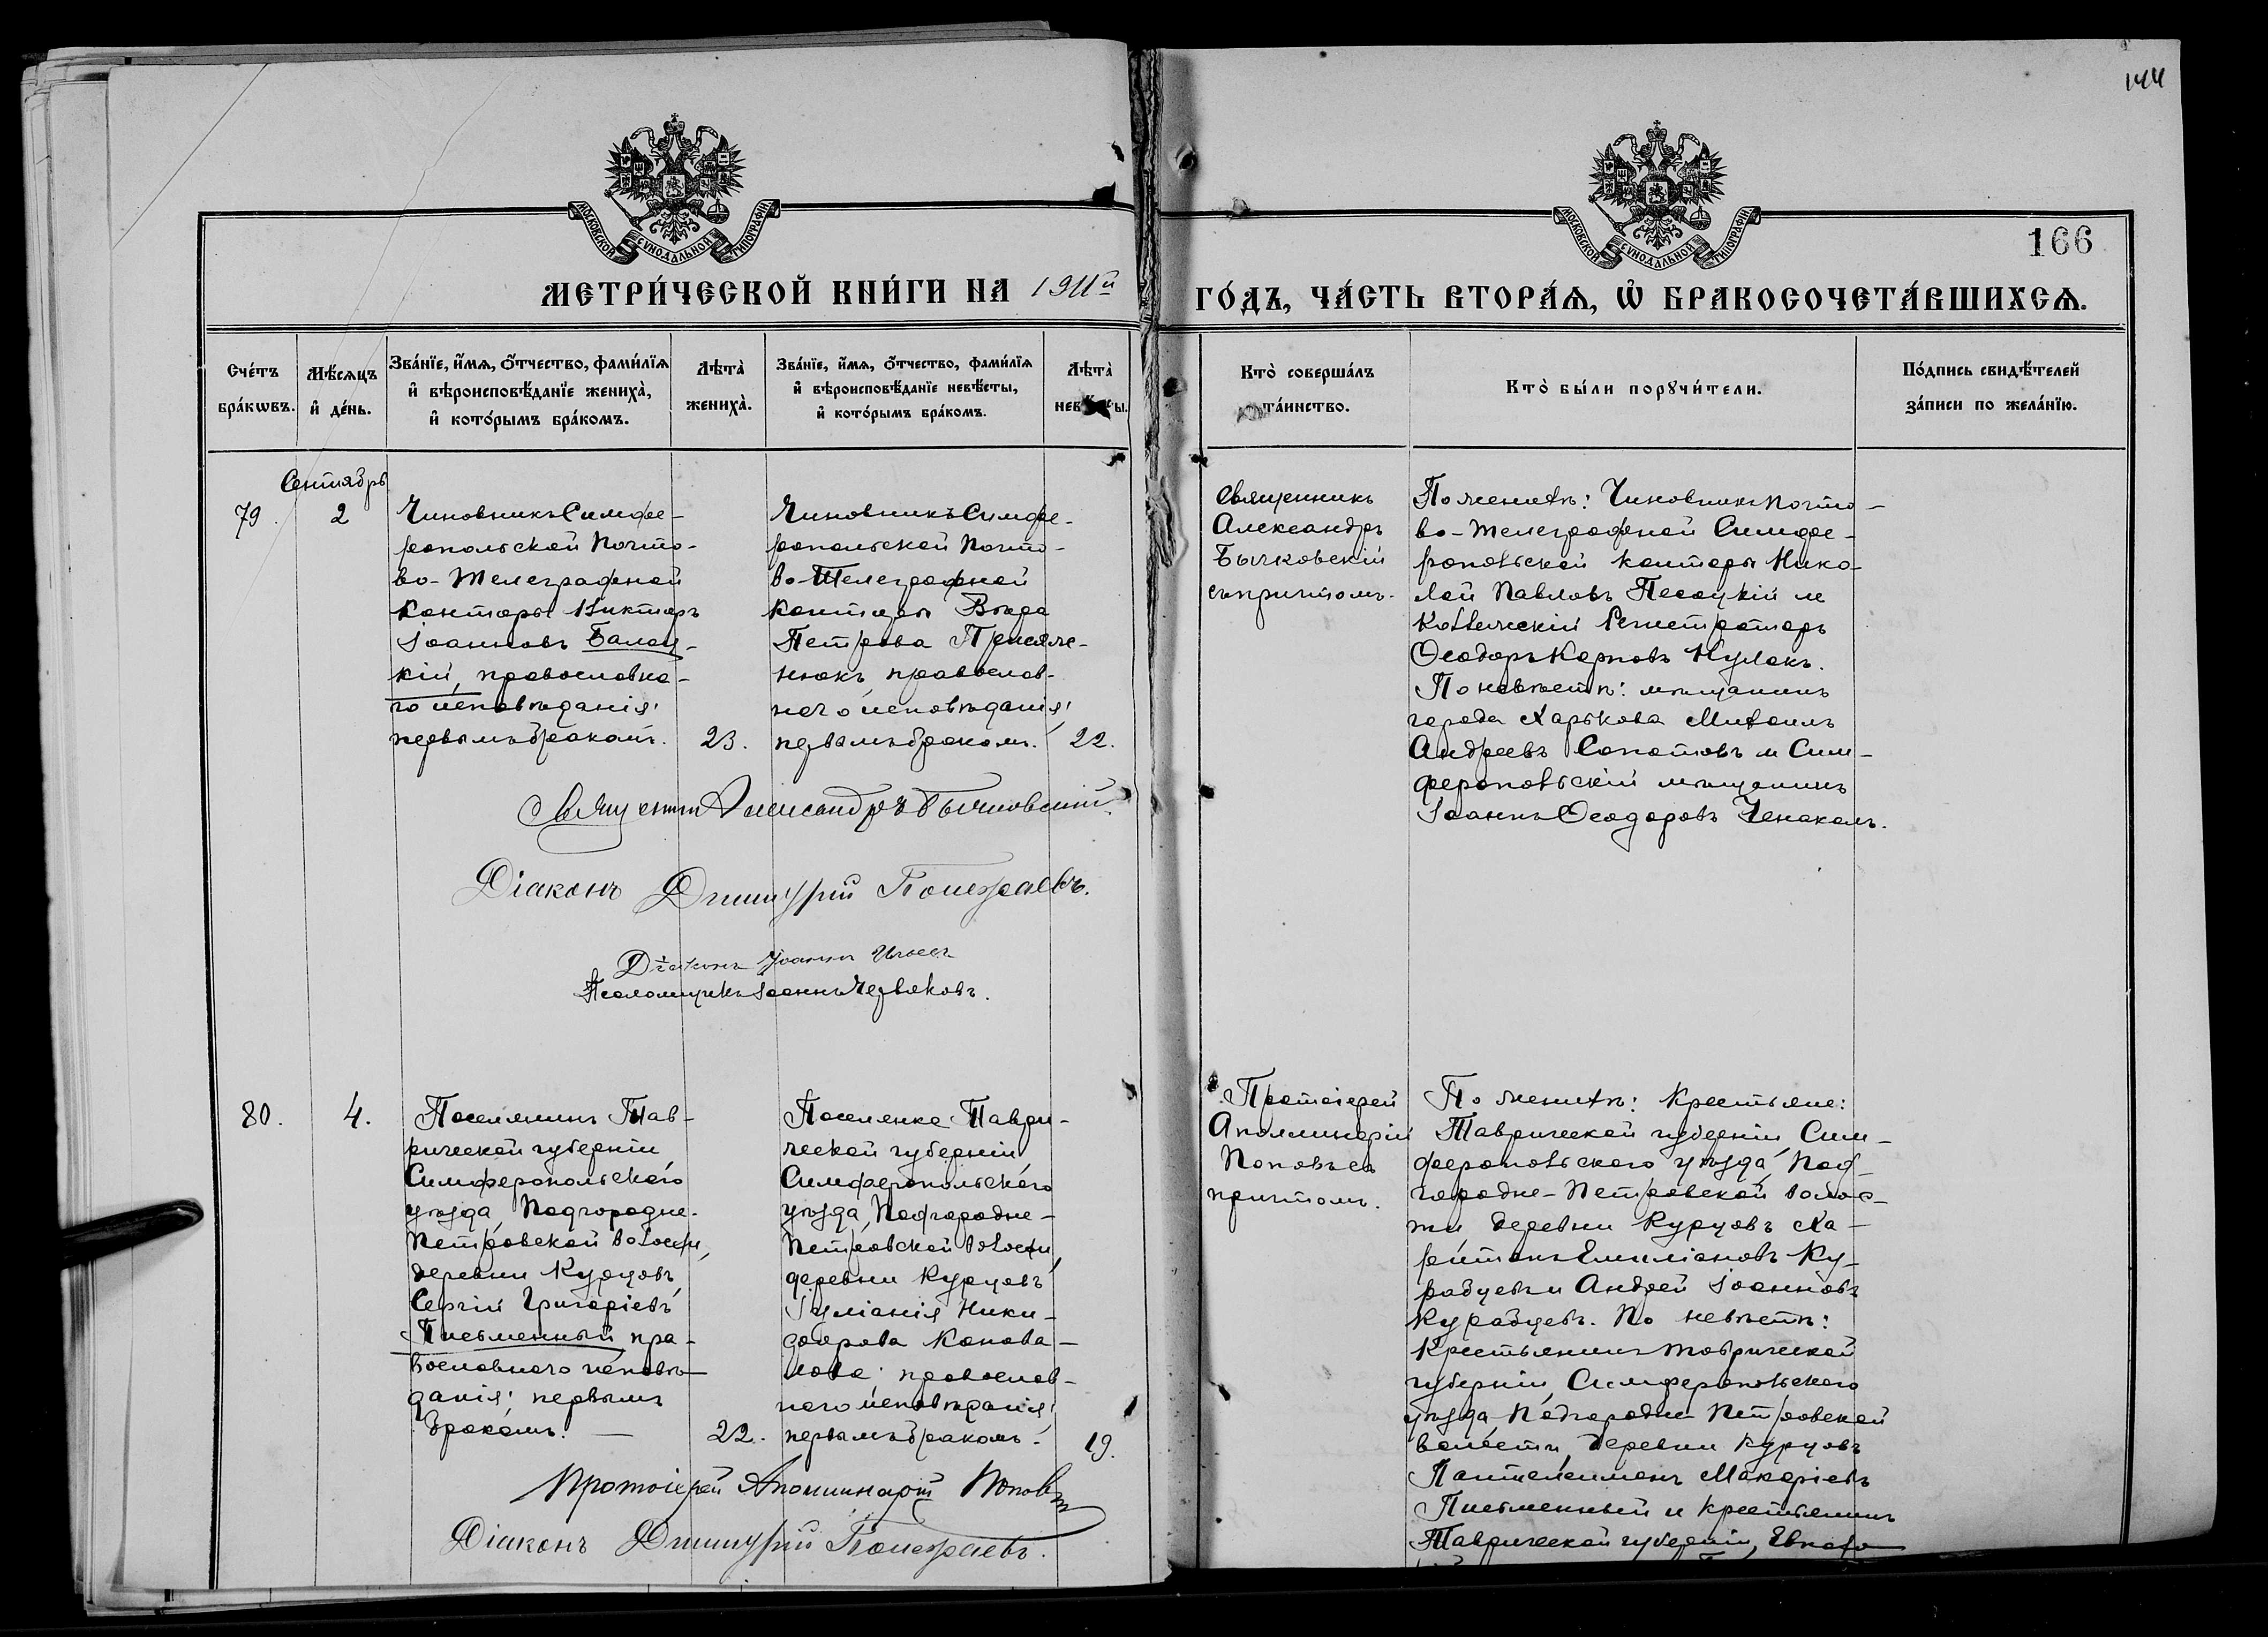 144
МОСКОВСКОЙ СУНОДАЛЬНОЙ ТИПОГРАФІИ
МОСКОВСКОЙ СУНОДАЛЬНОЙ ТИПОГРАФІИ
166
МЕТРИ́ЧЕСКОЙ КНИ́ГИ НА 1911й
ГО́ДЪ, ЧА́СТЬ ВТОРА́Ѧ, Ѡ҆ БРАКОСОЧЕТА́ВШИХСѦ.
Сче́тъ
бра́кѡвъ.
Мѣ́сѧцъ
и҆ де́нь.
Зва́нїе, и҆́мѧ, ѻ҆́тчество, фами́лїѧ
и҆ вѣроисповѣ́данїе жениха̀,
и҆ кото́рымъ бра́комъ.
Лѣта̀
жениха̀.
Зва́нїе, и҆́мѧ, ѻ҆́тчество, фами́лїѧ
и҆ вѣроисповѣ́данїе невѣ́сты,
и҆ кото́рымъ бра́комъ.
Лѣта̀
невѣ́сты.
Кто̀ соверша́лъ
та́инство.
Кто̀ бы́ли порꙋчи́тели.
По́дпись свидѣ́телей
за́писи по жела́нїю.
Сентябрь
79.
2
Чиновникъ Симфе-
ропольской Почто-
во-Телеграфной
Конторы Викторъ
Іоанновъ Балац-
кій, православна-
го исповѣданія;
первымъ бракомъ.
23.
Чиновникъ Симфе-
ропольской Почто-
во-Телеграфной
Конторы Вѣра
Петрова Присяж-
нюкъ, православ-
наго исповѣданія;
первымъ бракомъ.
22.
Священникъ
Александръ
Бычковскій
съ причтомъ.
По женихѣ: Чиновникъ Почто-
во-Телеграфной Симфе-
ропольской конторы Нико-
лай Павловъ Песоцкій и
Коллежскій Регистраторъ
Ѳеодоръ Карповъ Кулакъ.
По невѣстѣ: мѣщанинъ
города Харькова Михаилъ
Андреевъ Сопотовъ и Сим-
феропольскій мѣщанинъ
Іоаннъ Ѳеодоровъ Ченакалъ.
Священникъ Александръ Бычковскій.
Діаконъ Димитрій
Діаконъ Іоаннъ
Псаломщикъ Іоаннъ Червяковъ.
80.
4.
Поселянинъ Тав-
рической губерніи
Симферопольскаго
уѣзда, Подгородне-
Петровской волости,
деревни Курцовъ
Сергій Григоріевъ
Письменный пра-
вославнаго исповѣ-
данія; первымъ
бракомъ. —
22.
Поселянка Таври-
ческой губерніи
Симферопольскаго
уѣзда, Подгородне-
Петровской волости,
деревни Курцовъ
Іуліанія Ники-
форова Конова-
лова; православ-
наго исповѣданія;
первымъ бракомъ.
19.
Протоіерей
Аполлинарій
Поповъ съ
причтомъ.
По женихѣ: Крестьяне:
Таврической губерніи, Сим-
феропольскаго уѣзда, Под-
городне-Петровской волос-
ти, деревни Курцовъ Ха-
ритонъ Емиліановъ Ку-
рабцевъ и Андрей Іоанновъ
Курабцевъ. По невѣстѣ:
Крестьянинъ Таврической
губерніи, Симферопольскаго
уѣзда Подгородне Петровской
волости, деревни Курцовъ
Пантелеимонъ Макаріевъ
Письменный и крестьянинъ
Таврической губерніи, Евпато-
Протоіерей Аполлинарій Поповъ
Діаконъ Димитрій